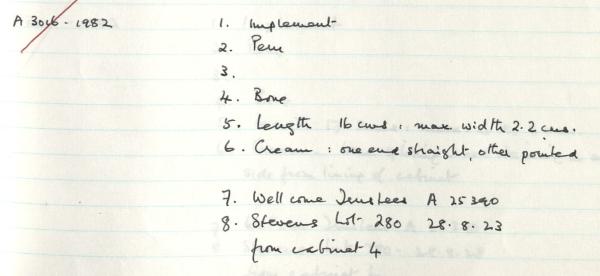 A 3016-1982
1. Implement
2. Peru
3.
4. Bone
5. Length 16 cms : max width 2.2 cms.
6. Cream : one end straight, other pointed
7. Wellcome Trustees A 25390
8. Stevens Lot 280 28.8.23
from cabinet 4